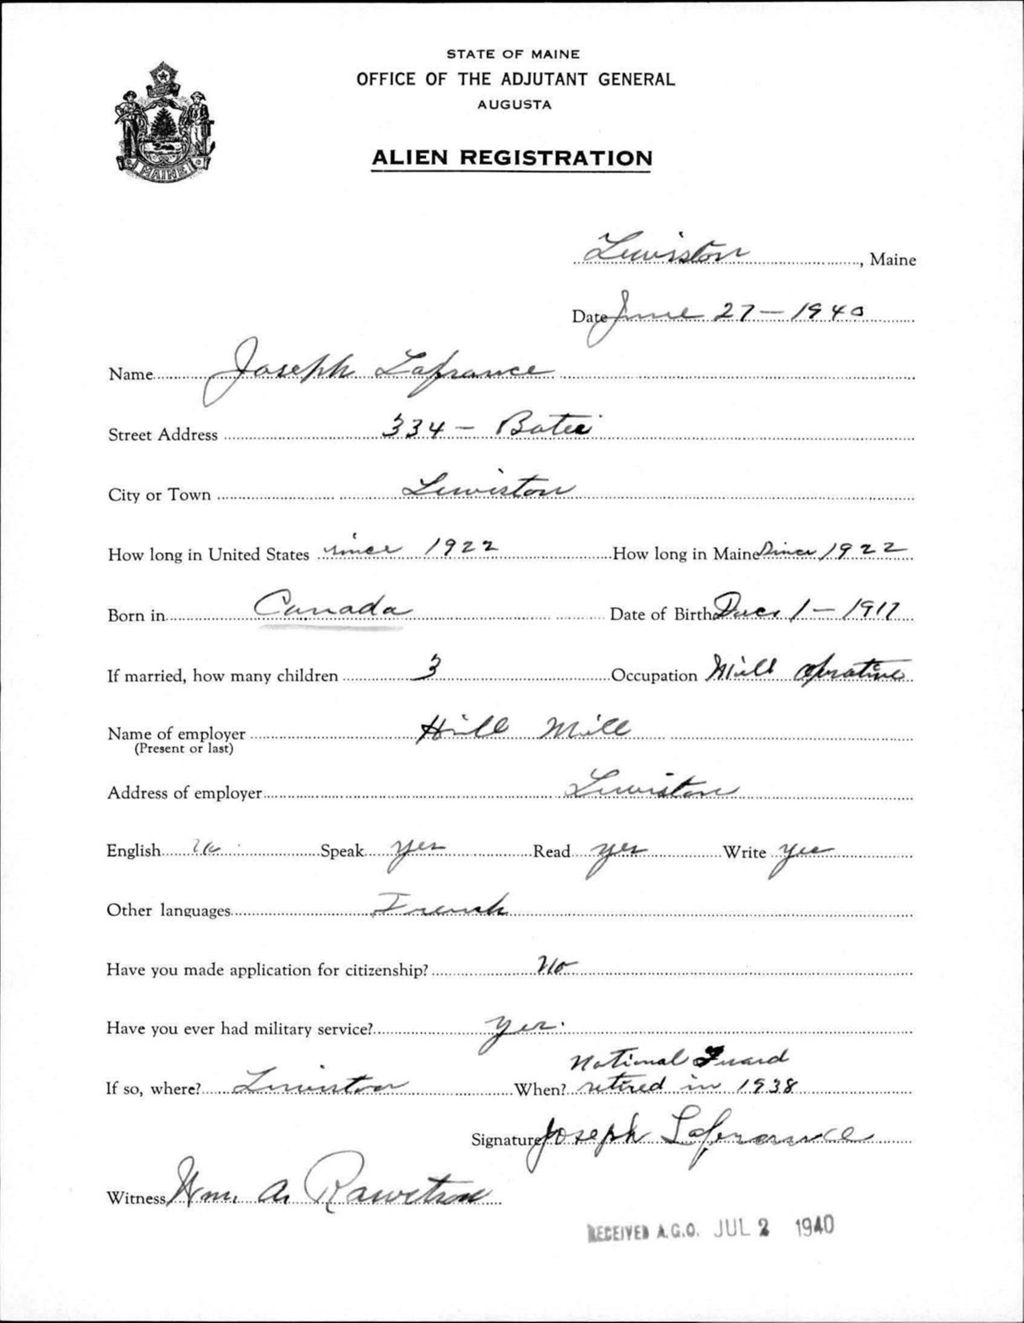 STATE OF MAINE
OFFICE OF THE ADJUTANT GENERAL
AUGUSTA
ALIEN REGISTRATION
MAINE
Lewiston, Maine
Date June 27 - 1940
Name Joseph Lafrance
Street Address 334 - Bates
City or Town Lewiston
How long in United States since 1922 How long in Maine Since 1922
Born in Canada Date of Birth 1 - 1917
If married, how many children 3 Occupation Mill Oprative
Name of employer Hill Mill
(Present or last)
Address of employer Lewiston
English Speak yes Read yes Write yes
Other languages French
Have you made application for citizenship? No
Have you ever had military service? Yes.
National Guard
If so, where? Lewiston When? retired in 1938
Signature Joseph Lafrance
Witness Wm. A.
RECEIVED A.G.O. JUL 2 1940